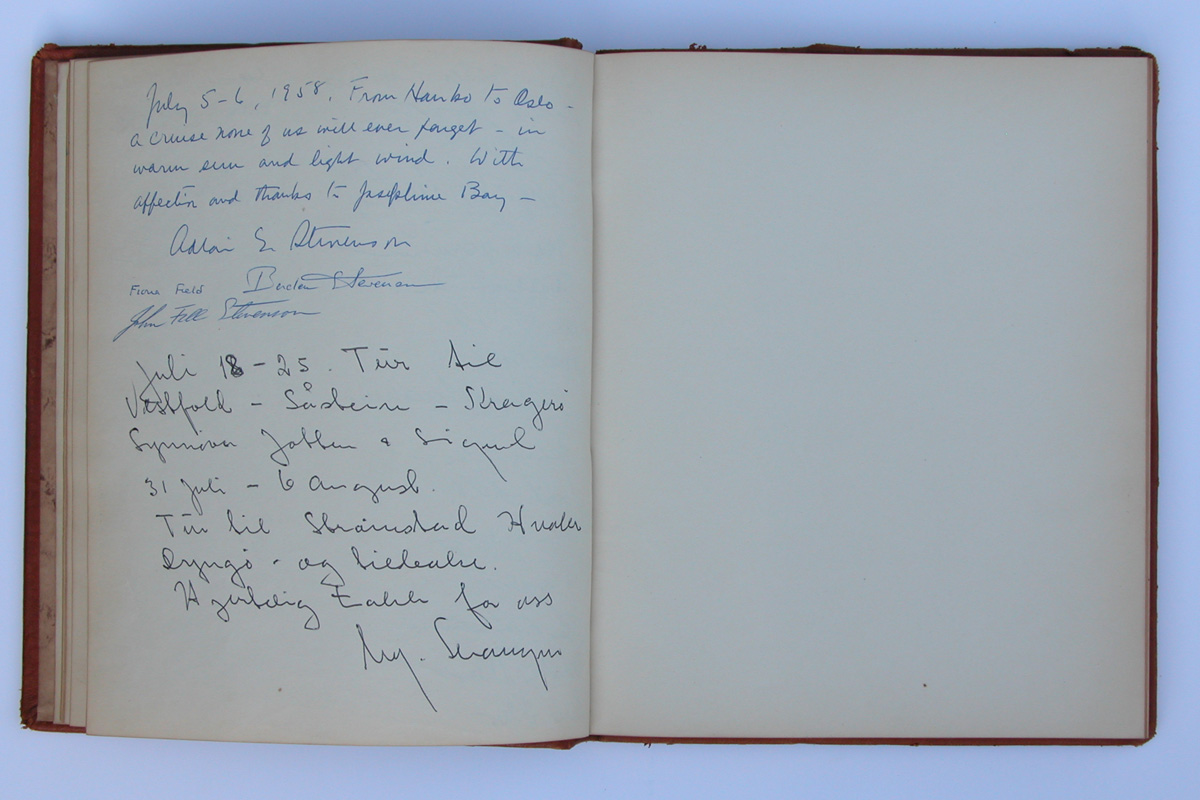 July 5-6, 1958. From Hanko to Oslo -
a cruise none of us will ever forget - in
warm sun and light wind. With
affection and thanks to Josephine Bay -
Adlai E. Stevenson
Fiona Field Borden Stevenson
John Fell Stevenson
Juli 18 - 25. Tur til
Vestfold - Såstein - Kragerö
Synnöva &
31 Juli - 6 August.
Tur til Strömstad Hvaler
Dyngö - og tilbake.
Hjertelig Takk for oss